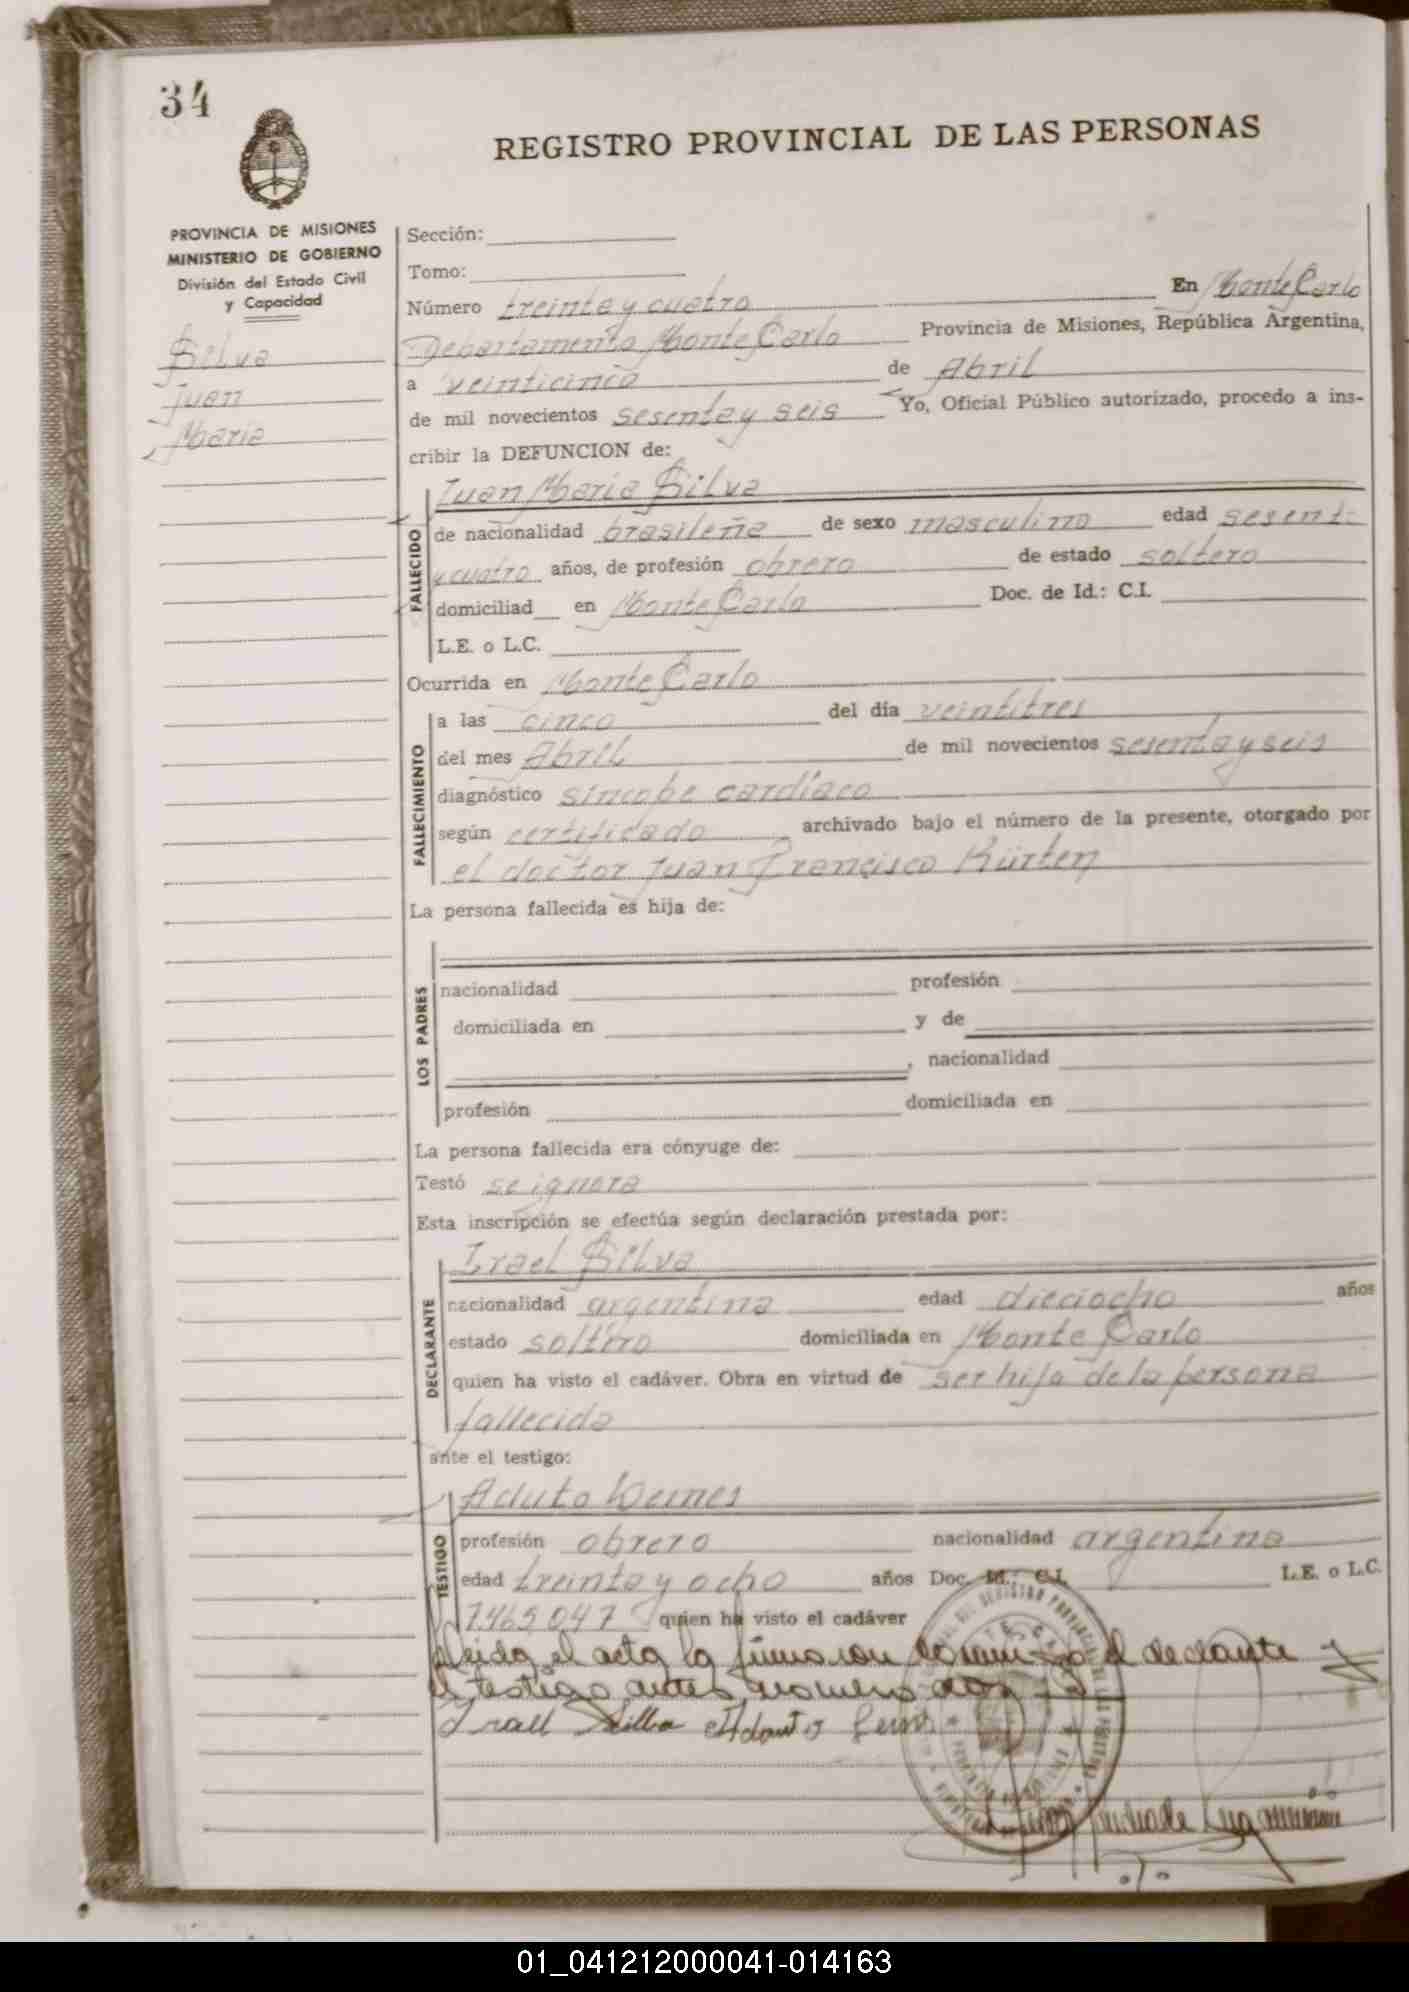 34
REGISTRO PROVINCIAL DE LAS PERSONAS
PROVINCIA DE MISIONES
MINISTERIO DE GOBIERNO
División del Estado Civil
y Capacidad
Silva
Juan
Maria
Sección:
Tomo:
Número treinta y cuatro En Monte Carlo
Departamento Monte Carlo Provincia de Misiones, República Argentina,
a veinticinco de Abril
de mil novecientos sesenta y seis Yo, Oficial Público autorizado, procedo a ins-
cribir la DEFUNCION de:
FALLECIDO
Juan Maria Silva
de nacionalidad brasileña de sexo masculino edad sesent-
y cuatro años, de profesión obrero de estado soltero
domiciliad en Monte Carlo Doc. de Id.: C.I.
L.E. o L.C.
Ocurrida en Monte Carlo
FALLECIMIENTO
a las cinco del día veintitres
del mes Abril de mil novecientos sesenta y seis
diagnóstico síncope cardíaco
según certificado archivado bajo el número de la presente, otorgado por
el doctor Juan Francisco Kürten
La persona fallecida es hija de:
LOS PADRES
nacionalidad profesión
domiciliada en y de
, nacionalidad
profesión domiciliada en
La persona fallecida era cónyuge de:
Testó se ignora
Esta inscripción se efectúa según declaración prestada por:
DECLARANTE
Irael Silva
nacionalidad argentina edad dieciocho años
estado soltero domiciliada en Monte Carlo
quien ha visto el cadáver. Obra en virtud de ser hijo de la persona
fallecida
ante el testigo:
TESTIGO
Aduto Lemes
profesión obrero nacionalidad argentina
edad treinta y ocho años Doc. Id.: C.I. L.E. o L.C.
7.465.047 quien ha visto el cadáver
Leida el acta la firmaron conmigo el declante y
el testigo antes nomerados
Irael Silva Aduto Lemes
01_041212000041-014163